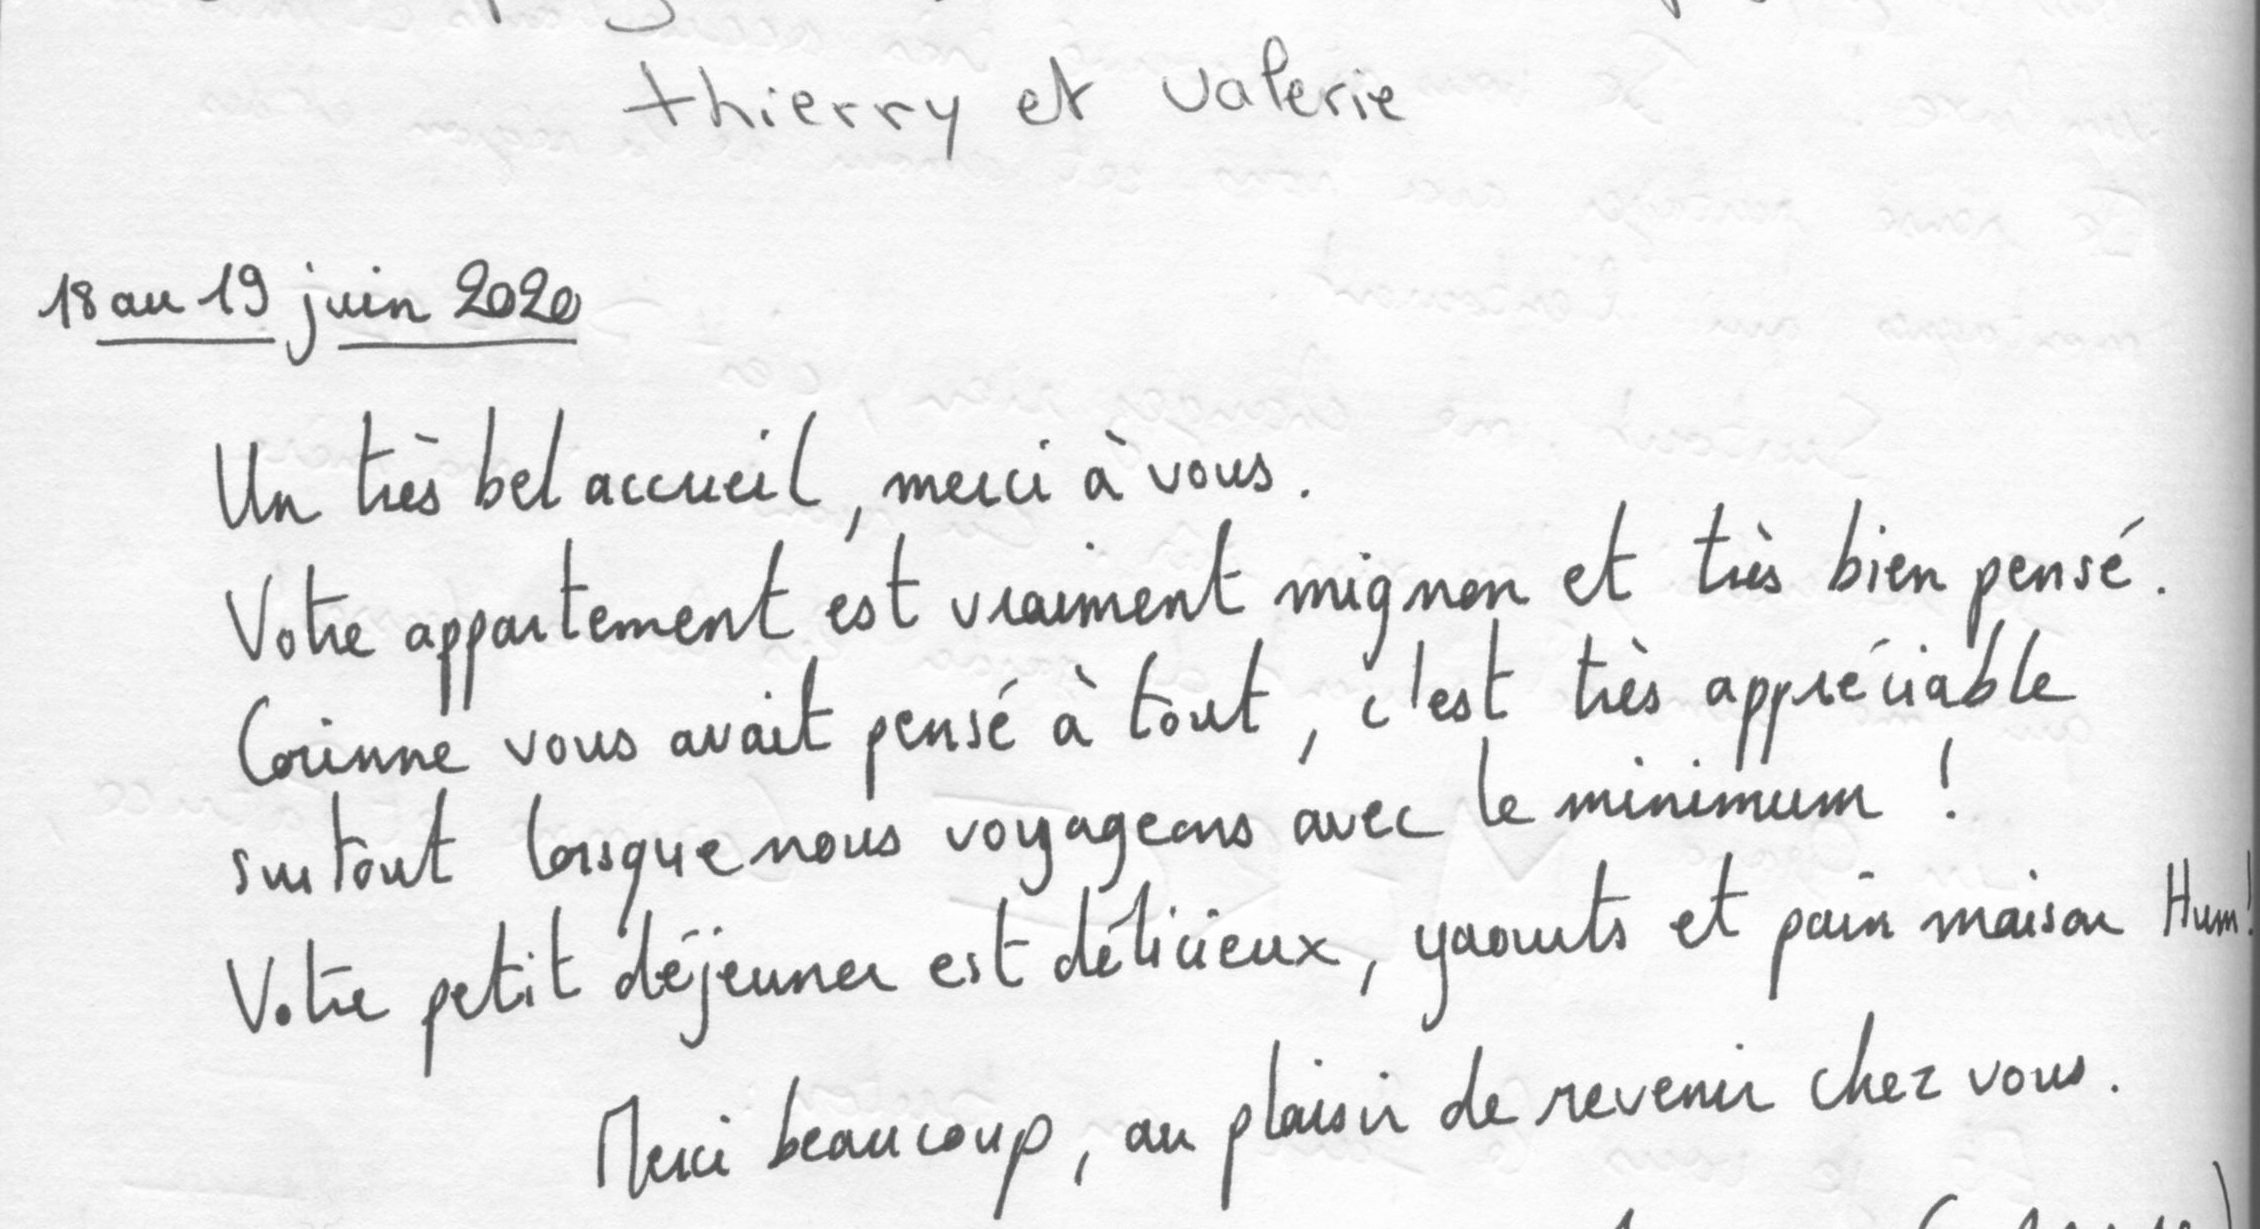 thierry et valerie
18 au 19 juin 2020
Un très bel accueil, merci à vous.
Votre appartement est vraiment mignon et très bien pensé.
Corinne vous avait pensé à tout, c'est très appréciable
surtout lorsque nous voyageons avec le minimum !
Votre petit déjeuner est délicieux, yaourts et pain maison Hum!
Merci beaucoup, au plaisir de revenir chez vous.